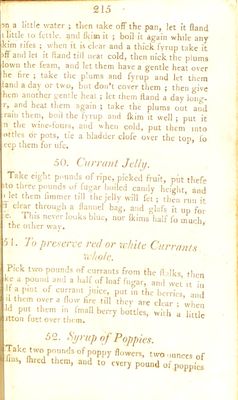 215
on a little water ; then take off the pan, let it ſtand
little to ſettle, and ſkim it ; boil it again while any
ſkim riſes ; when it is clear and a thick ſyrup take it
off and let it ſtand till near cold, then nick the plums
down the ſeam, and let them have a gentle heat over
he fire ; take the plums and ſyrup and let them
ſtand a day or two, but don't cover them ; then give
hem another gentle heat ; let them ſtand a day long-
r, and heat them again ; take the plums out and
rain them, boil the ſyrup and ſkim it well ; put it
the wine-ſours, and when cold, put them into
ottles or pots, tie a bladder cloſe over the top, ſo
eep them for uſe.
50. Currant Jelly.
Take eight pounds of ripe, picked fruit, put theſe
nto three pounds of ſugar boiled candy height, and
let them ſimmer till the jelly will ſet ; then run it
clear through a flannel bag, and glaſs it up for
e. This never looks blue, nor ſkims half ſo much,
the other way.
51. To preserve red or white Currants
whole.
Pick two pounds of currants from the ſtalks, then
ke a pound and a half of loaf ſugar, and wet it in
lf a pint of currant juice, put in the berries, and
il them over a ſlow fire till they are clear ; when
ld put them in ſmall berry bottles, with a little
utton ſuet over them.
52. Syrup of Poppies.
Take two pounds of poppy flowers, two ounces of
ſins, ſhred them, and to every pound of poppies